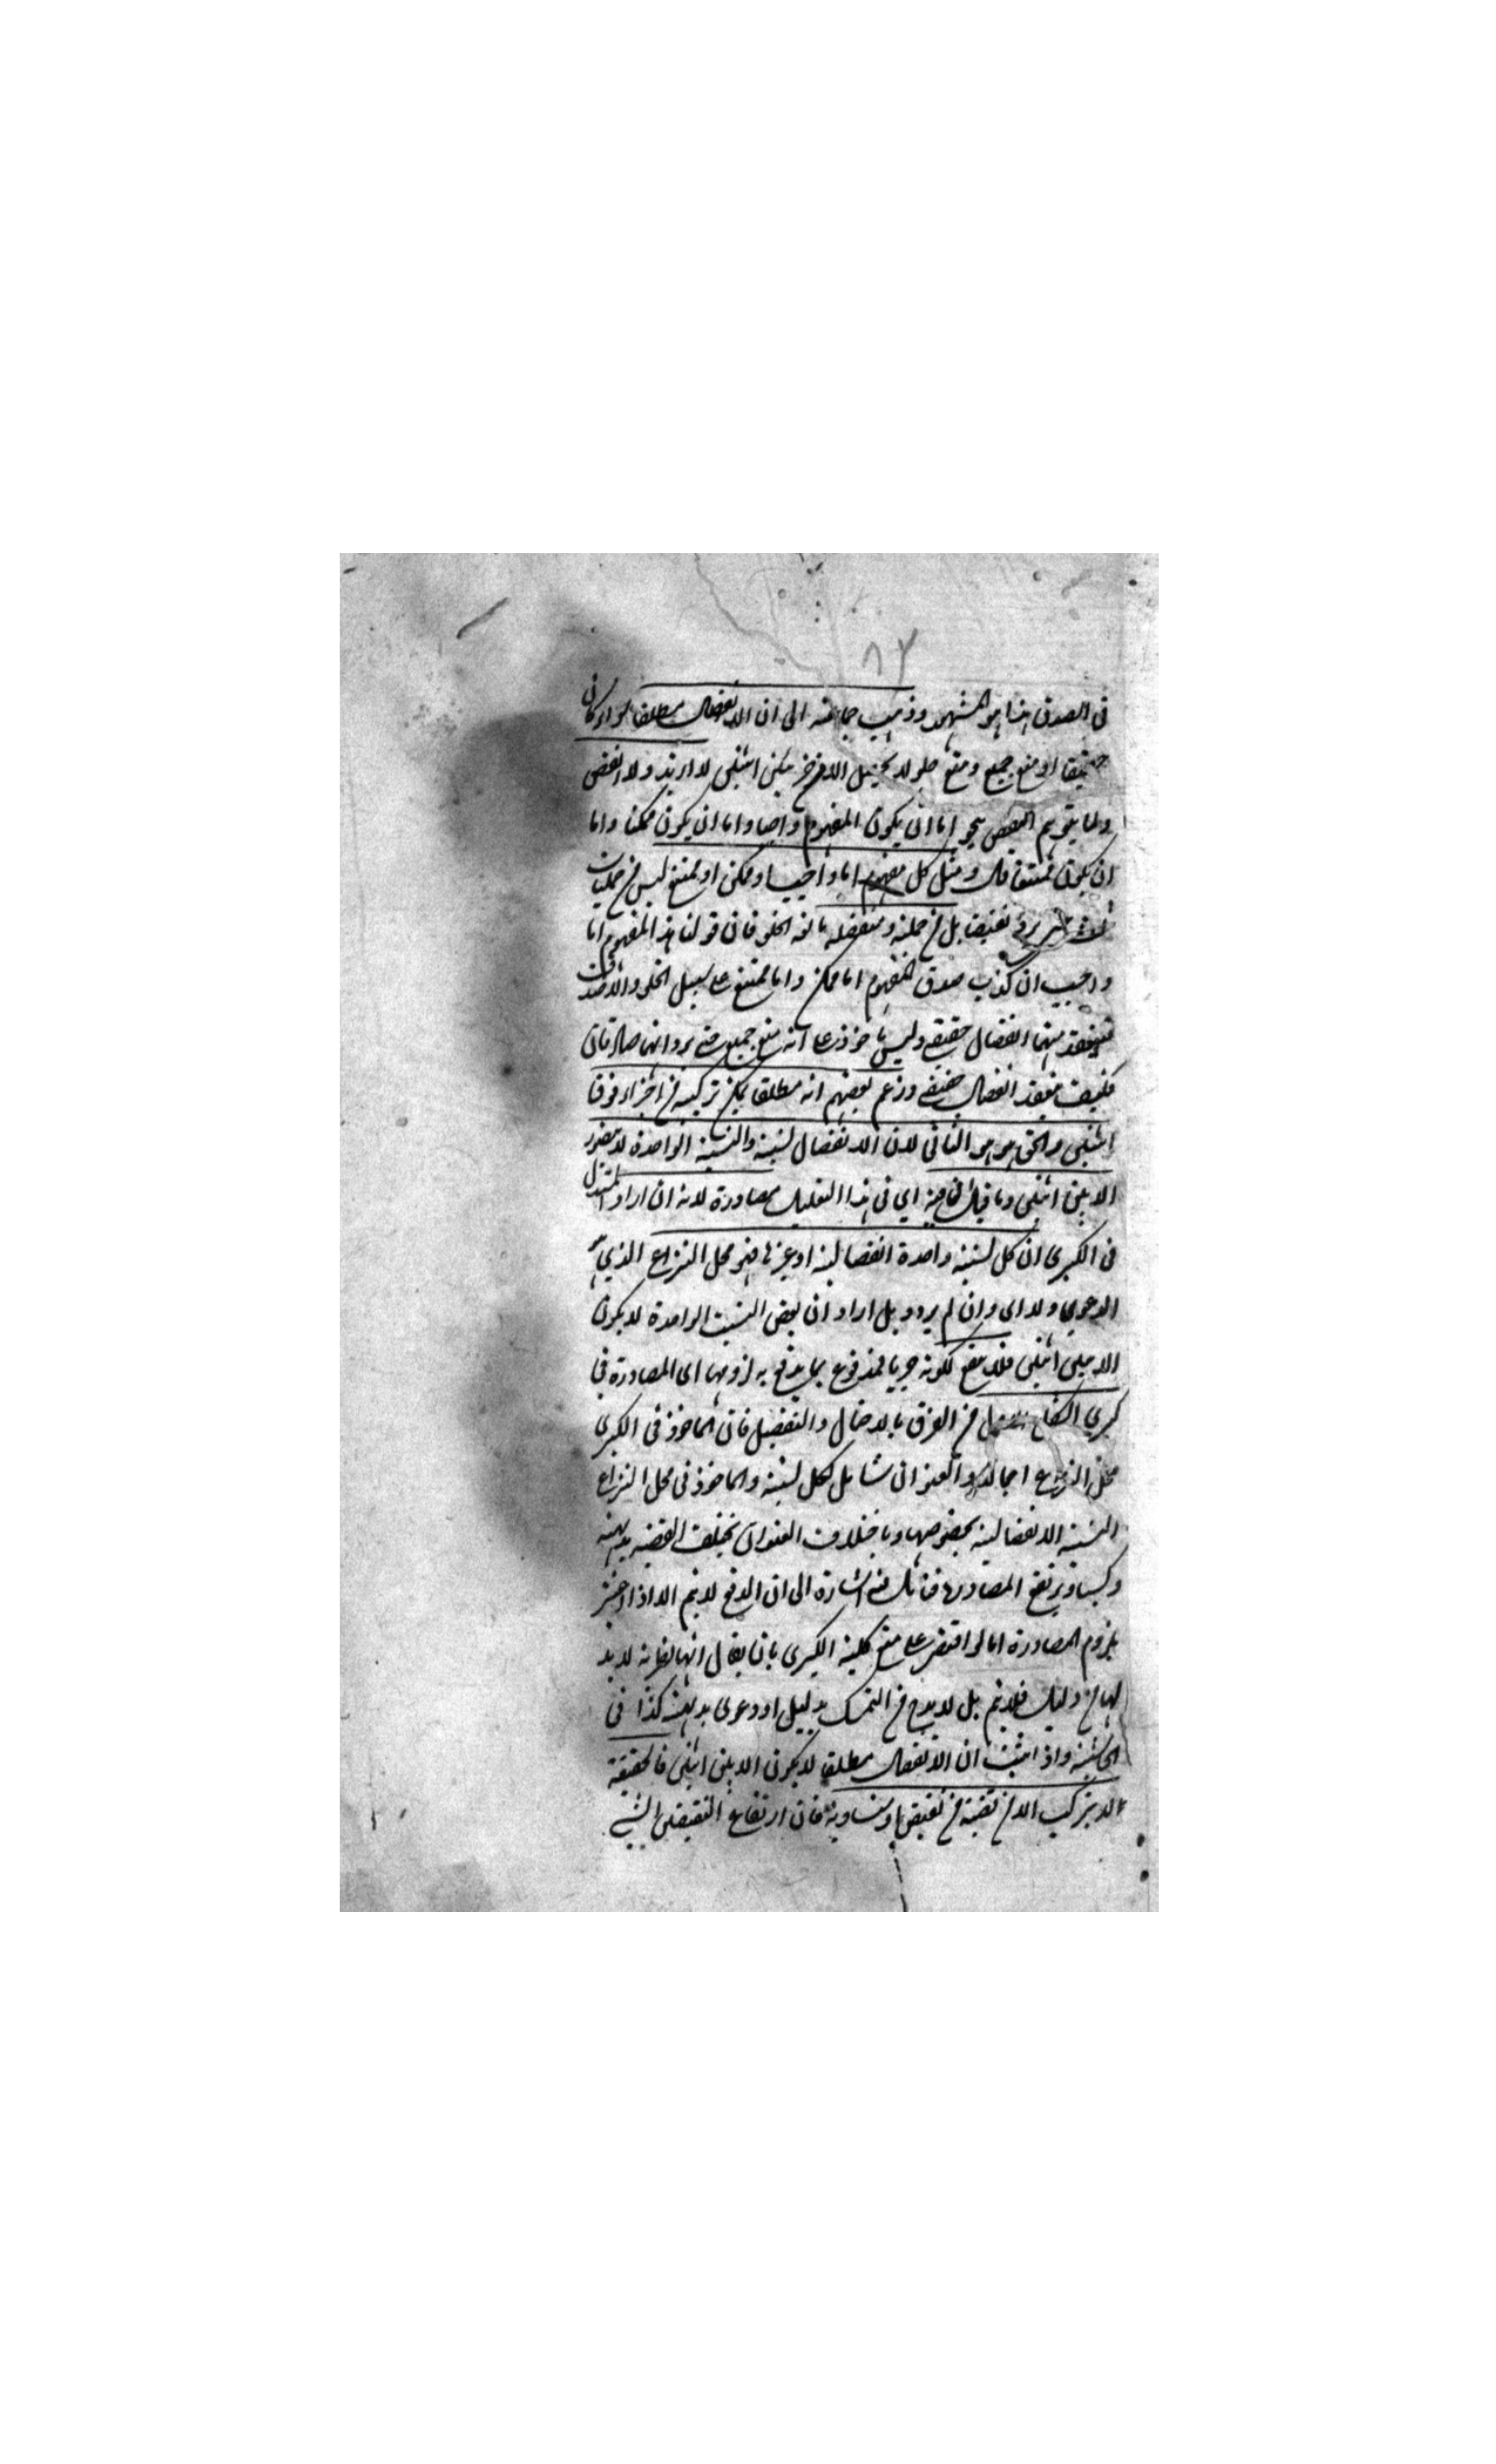 ٨٢
في الصدق هذا هو المشهور وذهب جماعة الى ان الانفصال مطلقا سواء كان
حقيقيا او منع جمع ومنع خلو لا يحصل الا من جزئين اثنين لا ازيد ولا انقص
اما ان يكون المفهوم واجبا واما ان يكون ممكنا واما
ان يكون ممتنعا قال ومثل كل مفهوم اما واجب او ممكن او ممتنع ليس من حمليات
ثلاث بل من حملية ومنفصلة مانعة الخلو فان قولنا هذا المفهوم اما
واجب ان كذب صدق المفهوم اما ممكن واما ممتنع على سبيل الخلو
فينعقد بينهما انفصال حقيقي وليس ماخوذ على انه منع جمع حتى يرد انهما صادقان
فكيف ينعقد انفصال حقيقي وزعم بعضهم انه مطلقا يمكن تركيبه من اجزاء فوق
اثنين والحق هو هو الثاني لان الانفصال نسبة والنسبة الواحدة لا يتصور
الا بين اثنين وما قيل فيه اي في هذا التعليل مصادرة لانه ان اراد المستدل
في الكبرى ان كل نسبة واحدة انفصالية او غيرها فهو محل النزاع الذي هو
الدعوى ولداى وان لم يرد بل اراد ان بعض النسبة الواحدة لا يكون
الا بين اثنين فلا ينفع لكونه جزئيا فمدفوع بما يدفع به لزومها اى المصادرة في
كبرى الشكل من الفرق بالاجمال والتفصيل فان الماخوذ في الكبرى
محل النزاع اجمالا والعنوان شامل لكل نسبة والماخوذ في محل النزاع
النسبة الانفصالية بخصوصها وباختلاف العنوان يختلف القضية بديهية
وكسبا ويرتفع المصادرة فتأمل فيه اشارة الى ان الدفع لا يتم الا اذا
بلزوم المصادرة اما لو اقتصر على منع كلية الكبرى بان يقال انها نظرية لا بد
لها من دليل فلا يتم بل لا بد من التمسك بدليل او دعوى بداهة كذا في
الحاشية واذا ثبت ان الانفصال مطلقا لا يكون الا بين اثنين فالحقيقة
لا يتركب الا من قضية من نقيض او مساويه فان ارتفاع النقيض الشيء